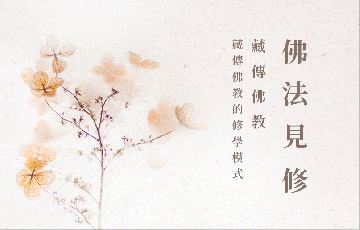 佛法見修
藏傳佛教
藏傳佛教的修學模式